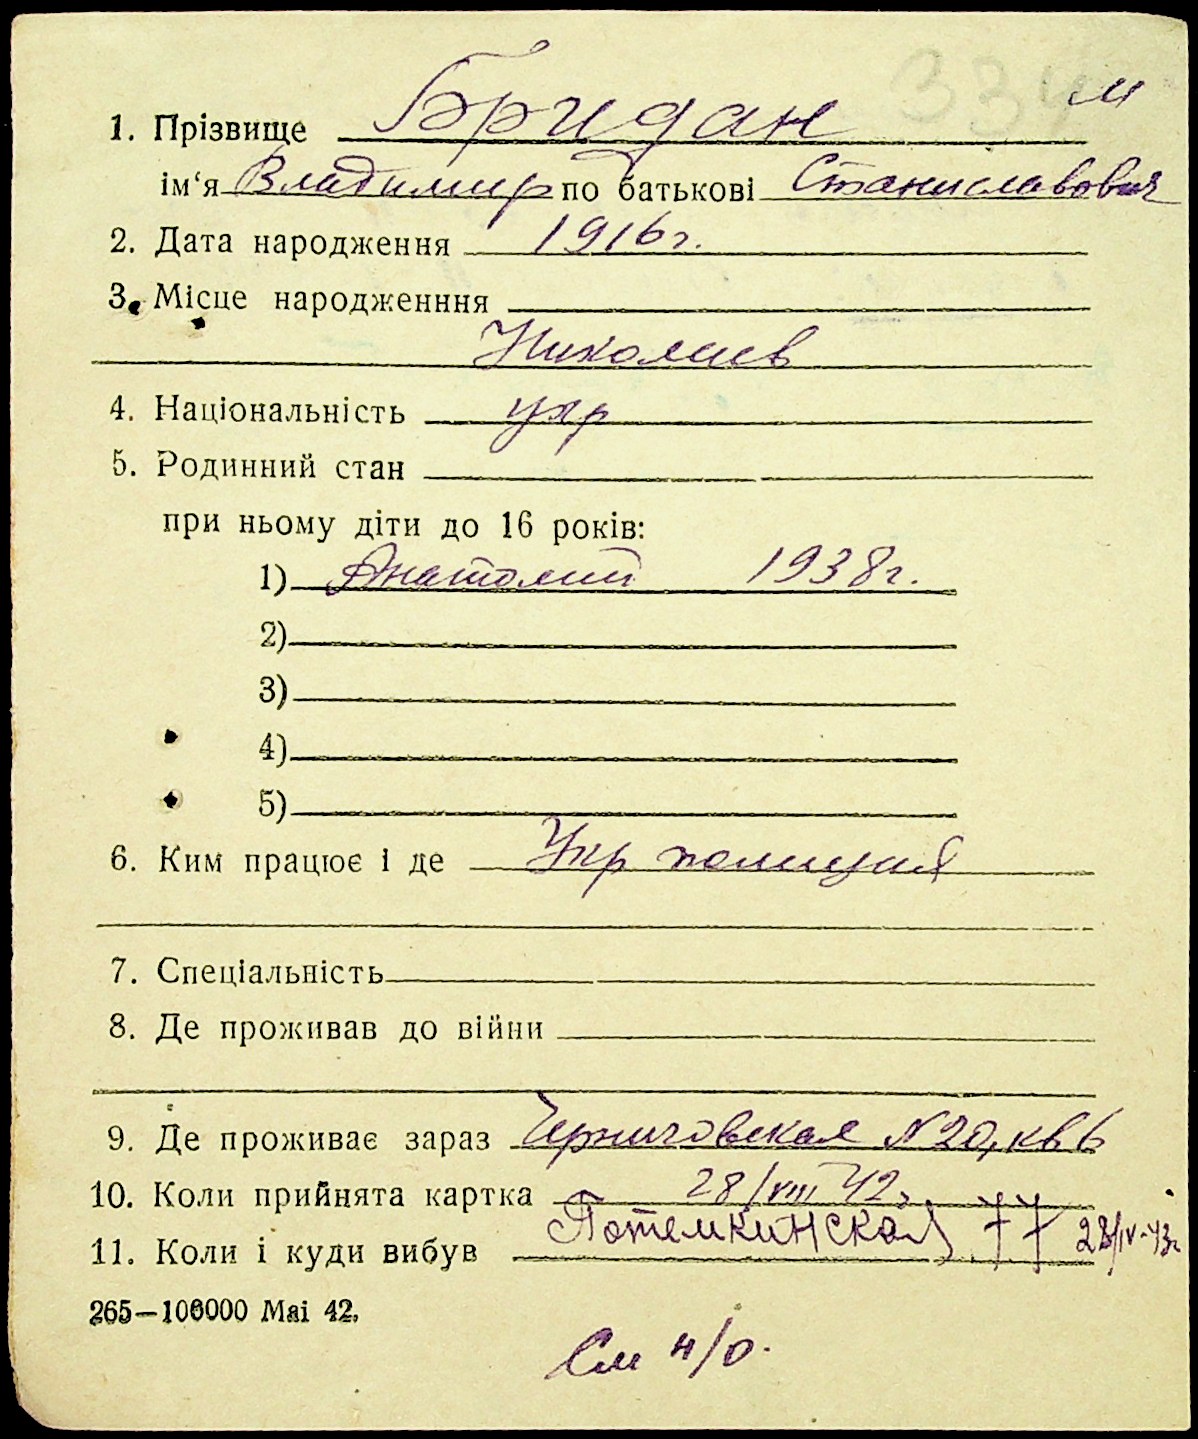 м
1. Прізвище Бридан
ім‘я Владимир по батькові Станиславович
2. Дата народження 1916 г.
3. Місце народженння
Николаев
4. Національність укр
5. Родинний стан
при ньому діти до 16 років:
1) Анатолий 1938 г.
2)
3)
4)
5)
6. Ким працює і де Укр полиция
7. Спеціальність
8. Де проживав до війни
9. Де проживає зараз Черниговская № 20, кв 6
10. Коли прийнята картка 28/VIII 42
11. Коли і куди вибув Потемкинская 77 28/IV-43г
265—100000 Mai 42.
См н/о.